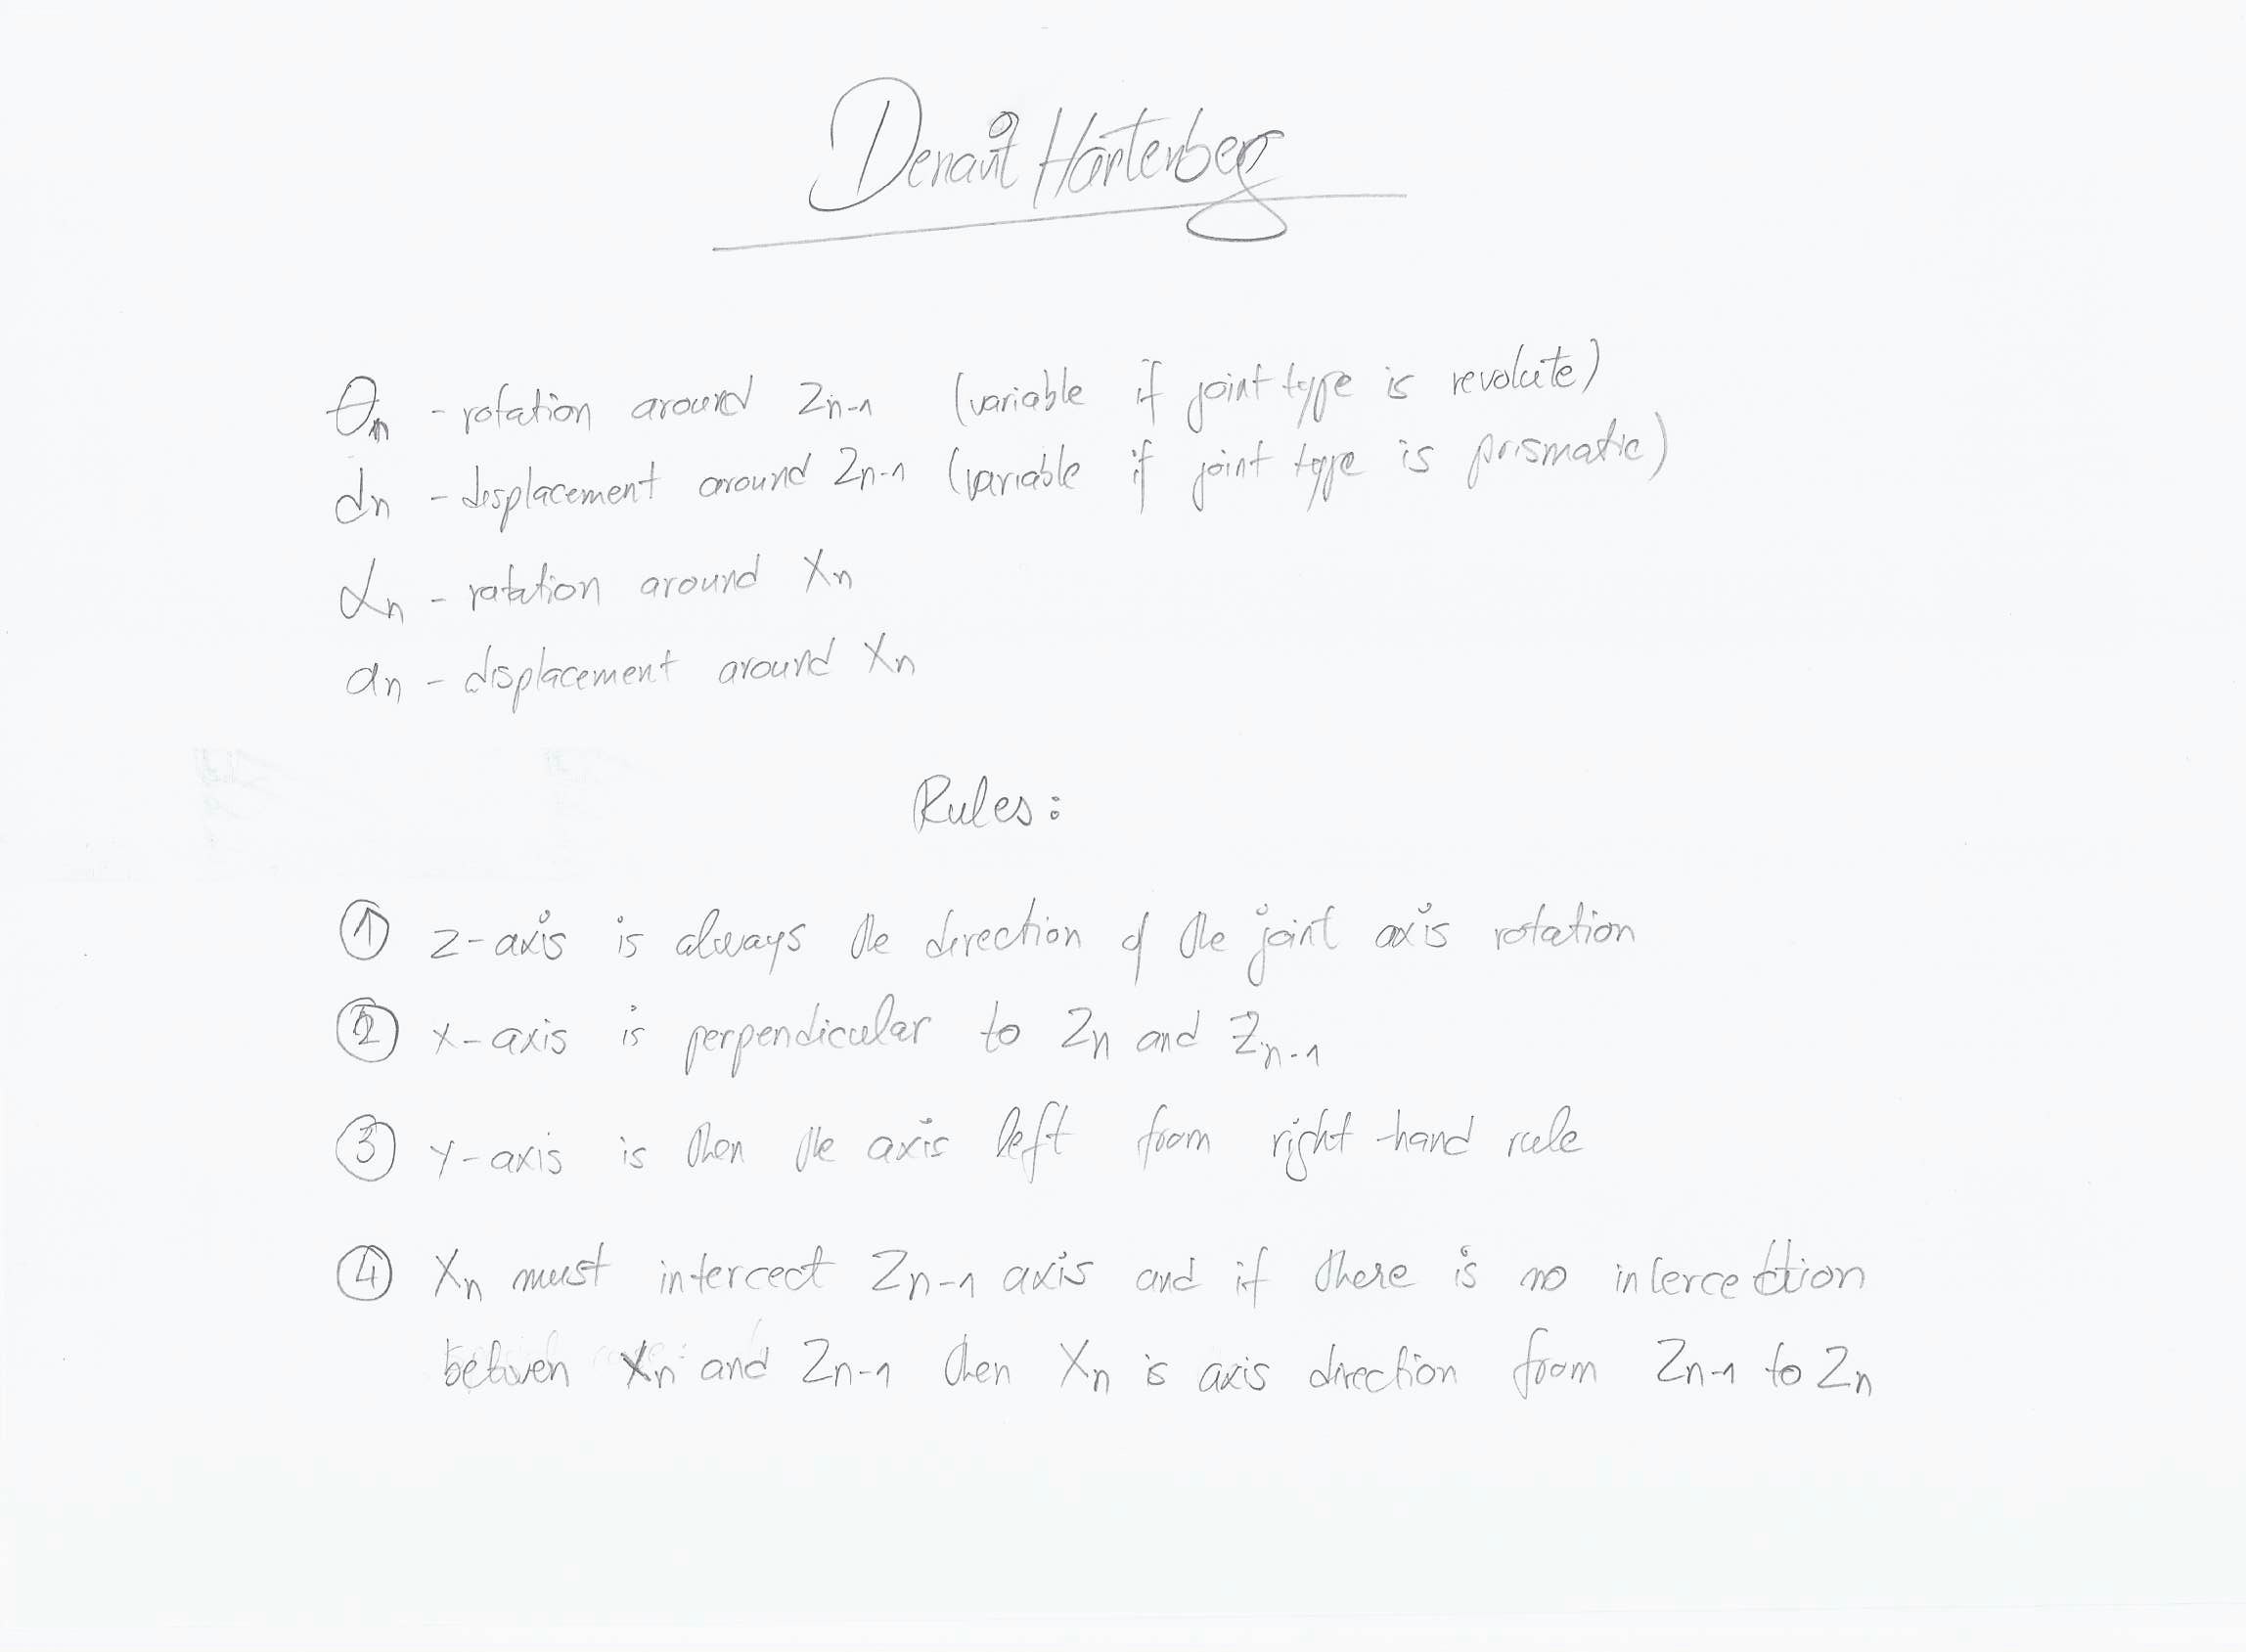 Denavit Hartenberg
θn - rotation around Zn-1 (variable if joint type is revolute)
dn - displacement around Zn-1 (variable if joint type is prismatic)
αn - rotation around Xn
an - displacement around Xn
Rules:
① z-axis is always the direction of the joint axis rotation
② x-axis is perpendicular to Zn and Zn-1
③ y-axis is then the axis left from right-hand rule
④ Xn must intercect Zn-1 axis and if there is no intercection
betwen Xn and Zn-1 then Xn is axis direction from Zn-1 to Zn